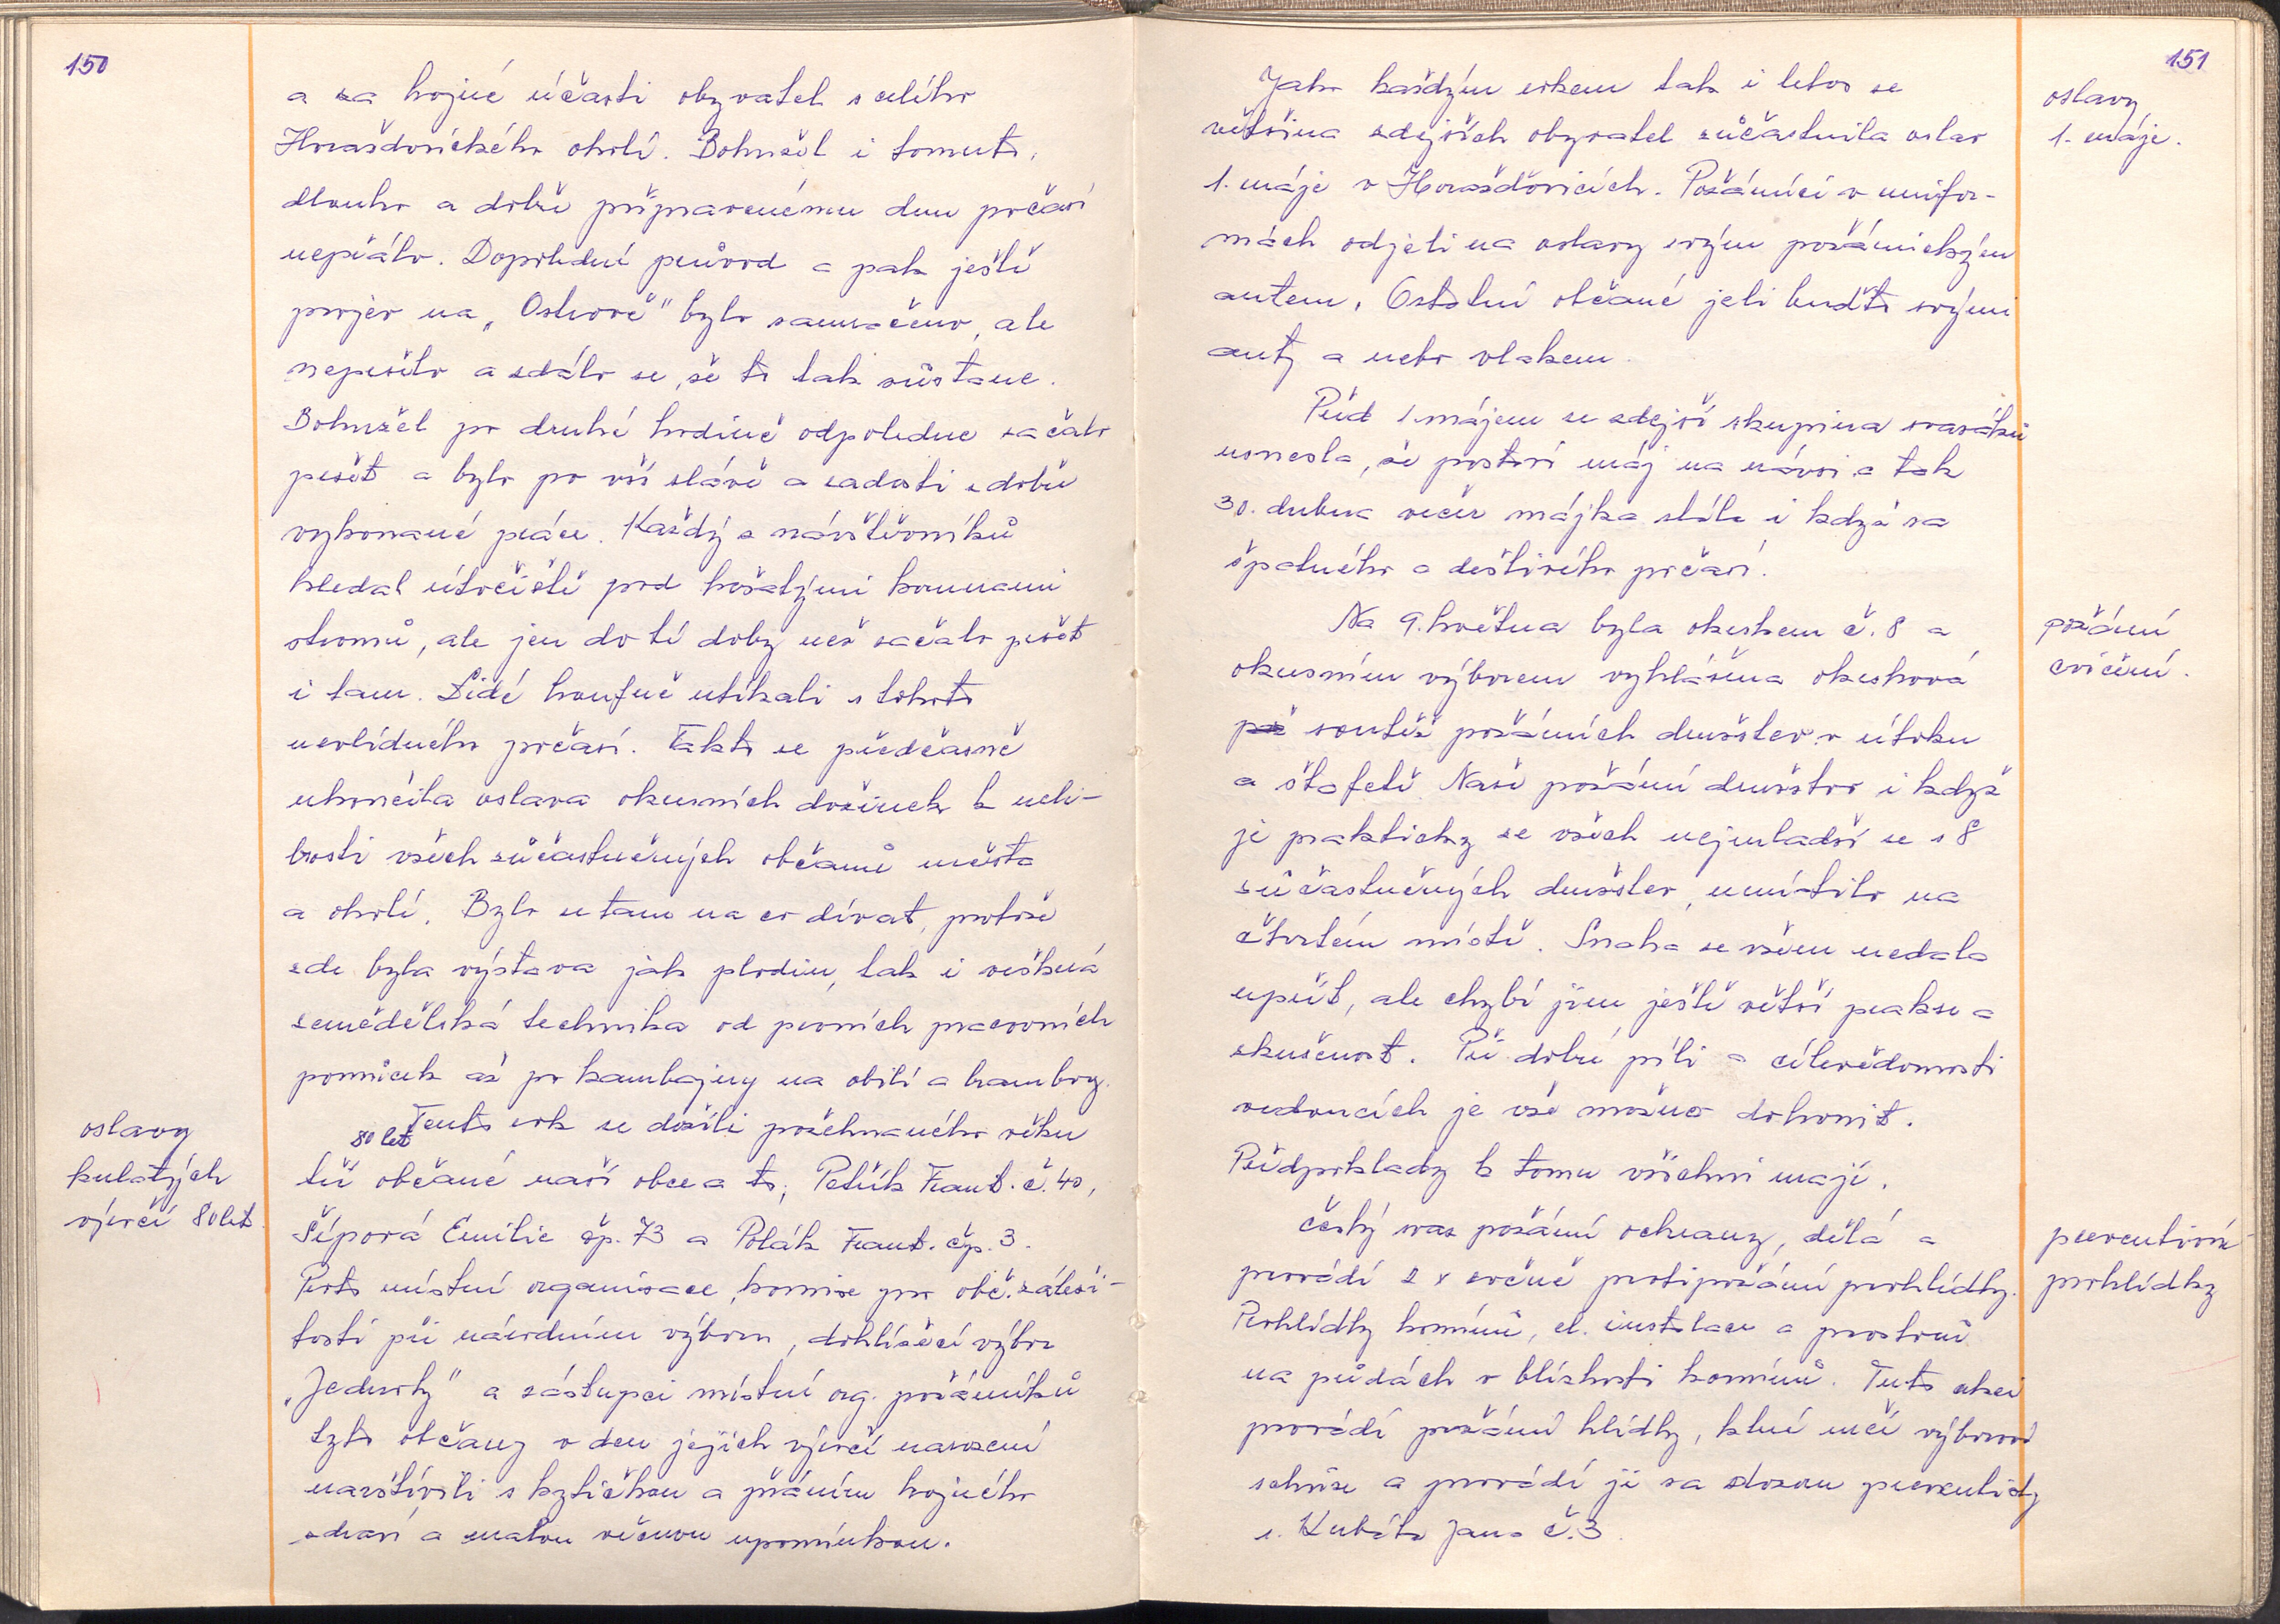 150
a za hojné účasti obyvatel z celého
Horažďovického okolí. Bohužel i tomuto,
dlouho a dobře připravenému dnu počasí
nepřálo. Dopolední průvod a pak ještě
projev na „Ostrově" bylo zamračeno, ale
nepršelo a zdálo se, že to tak zůstane.
Bohužel po druhé hodině odpoledne začalo
pršet a bylo po vší slávě a radosti z dobře
vykonané práce. Každý z návštěvníků
hledal útočiště pod košatými korunami
stromů, ale jen do té doby než začalo pršet
i tam. Lidé houfně utíkali z tohoto
nevlídného počasí. Takto se předčasně
ukončila oslava okresních dožinek k neli-
bosti všech zůčastněných občanů města
a okolí. Bylo se tam na co dívat, protože
zde byla výstava jak plodin, tak i veškerá
zemědělská technika od prvních pracovních
pomůcek až po kombajny na obilí a brambory.
oslavy
kulatých
výročí 80 let
80 let
Tento rok se dožili požehnaného věku
tři občané naší obce a to; Petřík Frant. č. 40,
Šípová Emilie čp. 73 a Polák Frant. čp. 3.
Proto místní organizace, komise pro obč. záleži-
tosti při národním výboru, dohlížecí výbor
„Jednoty" a zástupci místní org. požárníků
tyto občany v den jejich výročí narození
navštívili s kytičkou a přáním hojného
zdraví a malou věcnou upomínkou.
151
oslavy
1. máje.
Jako každým rokem tak i letos se
většina zdejších obyvatel zůčastnila oslav
1. máje v Horažďovicích. Požárníci v unifor-
mách odjeli na oslavy svým požárnickým
autem. Ostatní občané jeli buďto svými
auty a nebo vlakem.
Před 1. májem se zdejší skupina svazáků
usnesla, že postaví máj na návsi a tak
30. dubna večer májka stála i když za
špatného a deštivého počasí.
požární
cvičení.
Na 9. května byla okrskem č. 8 a
okresním výborem vyhlášena okrsková
soutěž požárních družstev v útoku
a štafetě. Naše požární družstvo i když
je prakticky ze všech nejmladší se z 8
zůčastněných družstev, umístilo na
čtvrtém místě. Snaha se všem nedala
upřít, ale chybí jim ještě větší prakse a
zkušenost. Při dobré píli a cílevědomosti
vedoucích je vše možno dohonit.
Předpoklady k tomu všichni mají.
preventivní
prohlídky
Český svaz požární ochrany, dělá a
provádí 2 x ročně protipožární prohlídky.
Prohlídky komínů, el. instalace a prostorů
na půdách v blízkosti komínů. Tuto akci
provádí požární hlídky, které určí výborová
schůze a provádí je za dozoru preventisty
s. Kubáta Jana č. 3.